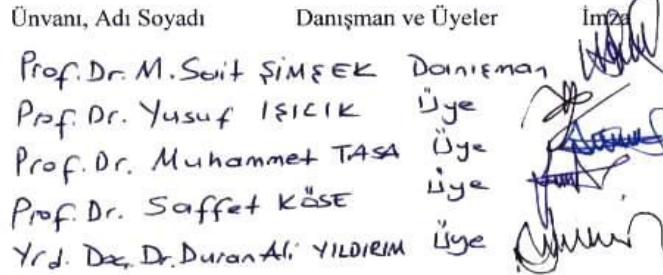 Ünvanı, Adı Soyadı Danışman ve Üyeler İmza
Prof. Dr. M. Sait ŞİMŞEK Danışman
Prof. Dr. Yusuf IŞICIK Üye
Prof. Dr. Muhammet TASA Üye
Prof. Dr. Saffet KÖSE Üye
Yrd. Doç. Dr. Duran Ali YILDIRIM Üye